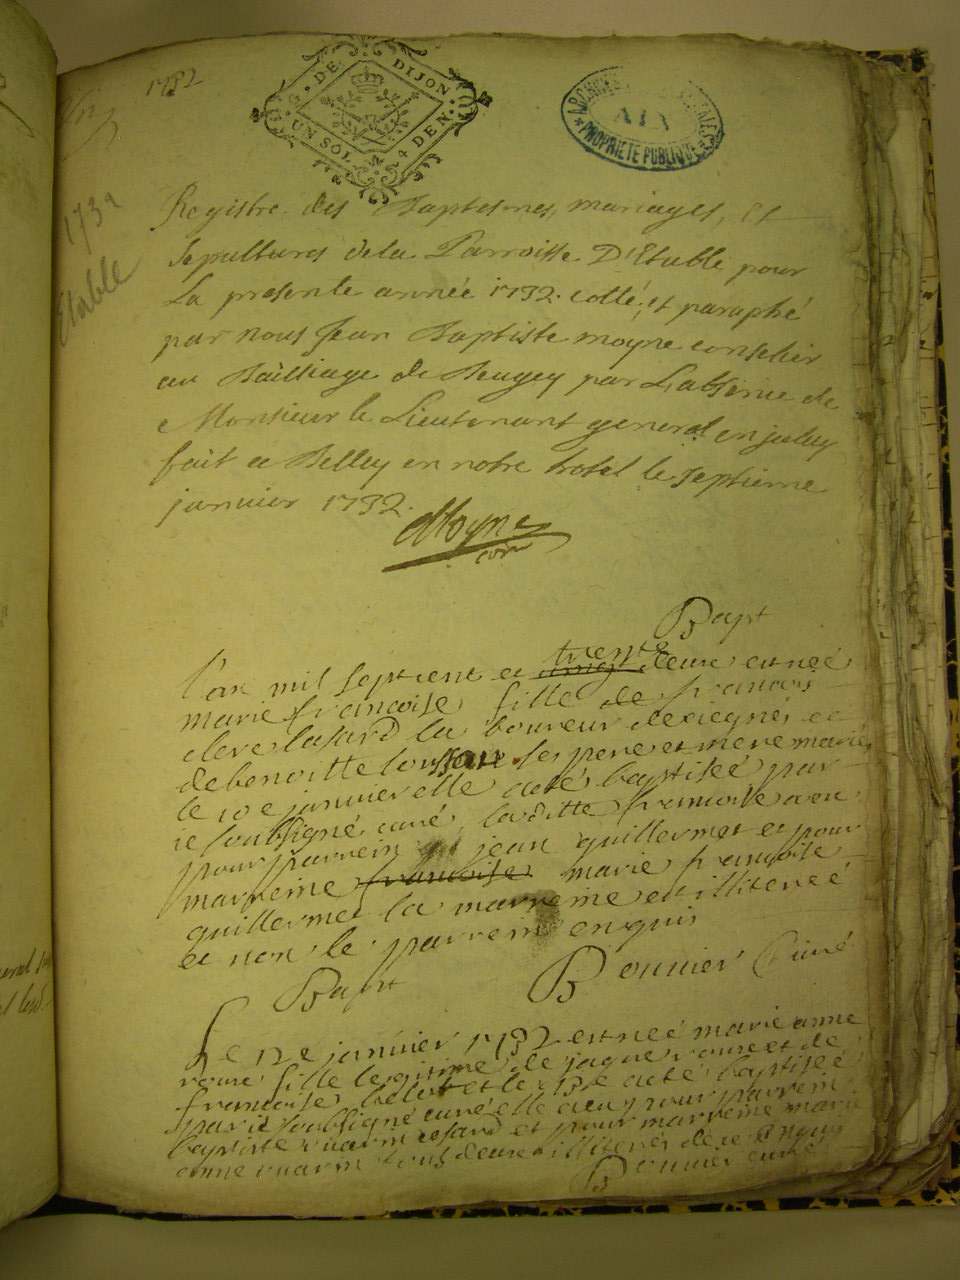 1732
G. DE DIJON
UN SOL 4 DEN.
ARCHIVES
AIN
PROPRIETE PUBLIQUE
1732
Etable
Registre des Baptesmes, mariages, Et
Sepultures de la Parroisse D'Etable pour
La presente année 1732. cotté, et paraphé
par nous Jean Baptiste moyne conselier
au Bailliage de Beugey par L'absence de
Monsieur le Lieutenant general
fait a Belley en notre hotel le septieme
janvier 1732.
Moyne
Bapt
l'an mil sept cent et trente deux est née
marie francoise fille de francois
laboureur de et
de benoitte ses pere et mere mariés
le 10e janvier elle a eté baptisée par
ie soubsigné curé laditte francoise a eu
pour parrein jean guillermet et pour
marreine francoise marie francoise
guillermet la marreine est illiterée
et non le parrein enquis
Bonnier Curé
Bapt
Le 12e janvier 1732 est née marie anne
fille legitime de jaque et de
francoise et le 13e a eté baptisée
par ie soubsigné curé elle a eu pour parrein
baptiste et pour marreine marie
anne tous deux illiterés de ce enquis
Bonnier curé